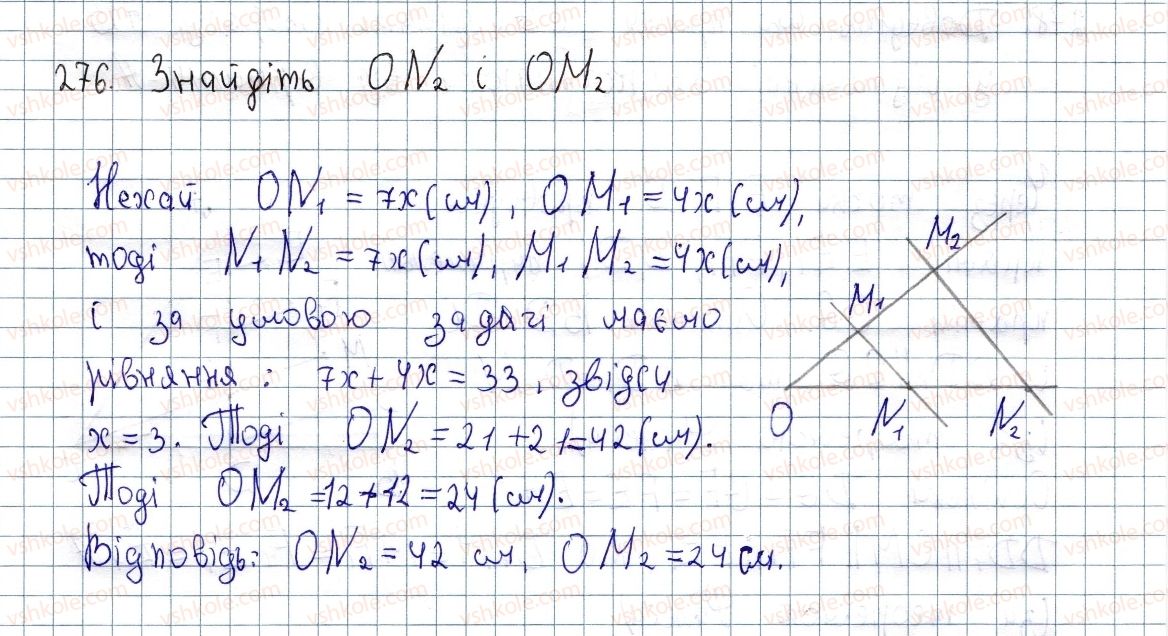 276. Знайдіть ON₂ і OM₂
Нехай ON₁ = 7x (см), OM₁ = 4x (см),
тоді N₁N₂ = 7x (см), M₁M₂ = 4x (см),
і за умовою задачі маємо
рівняння: 7x + 4x = 33, звідси
x = 3. Тоді ON₂ = 21 + 21 = 42 (см).
Тоді OM₂ = 12 + 12 = 24 (см).
Відповідь: ON₂ = 42 см, OM₂ = 24 см.
M₂
M₁
O N₁ N₂
vshkole.com